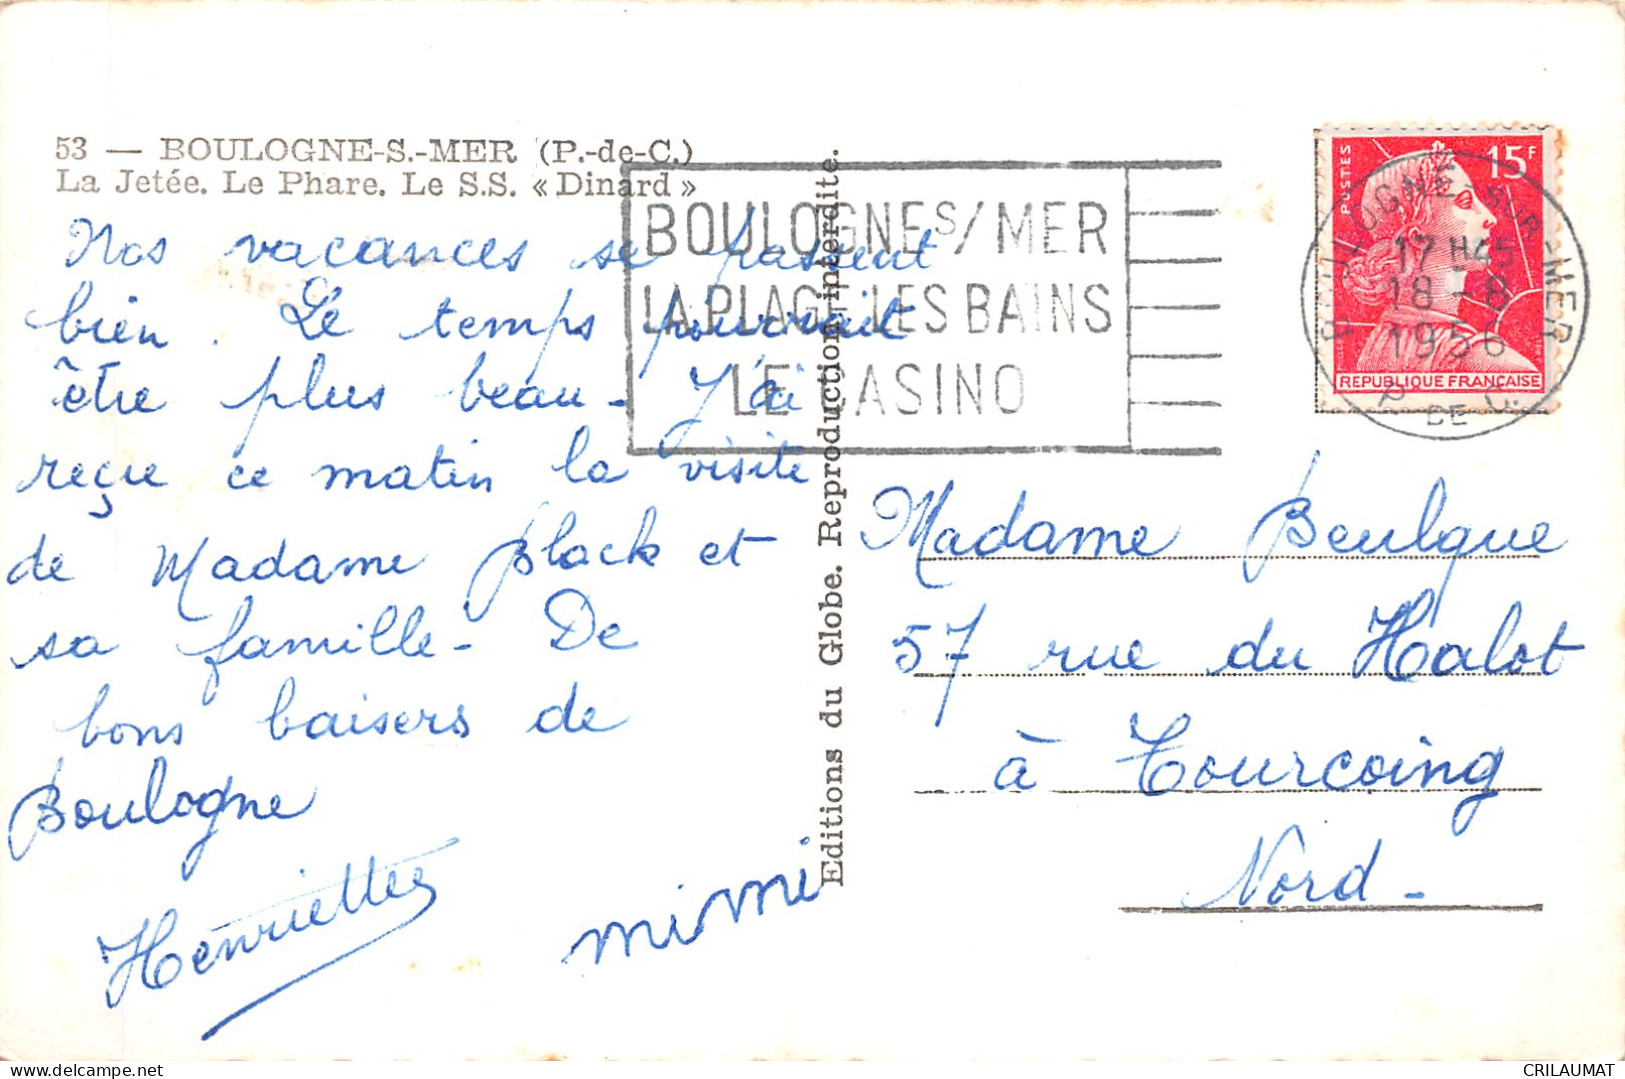 53 — BOULOGNE-S.-MER (P.-de-C.)
La Jetée. Le Phare. Le S.S. « Dinard »
Nos vacances se passent
bien. Le temps pourrait
être plus beau - J'ai
reçu ce matin la visite
de Madame Black et
sa famille - De
bons baisers de
Boulogne
Henriette
mimi
Editions du Globe. Reproduction interdite.
BOULOGNE S/MER
LA PLAGE LES BAINS
LE CASINO
POSTES
15F
REPUBLIQUE FRANÇAISE
BOULOGNE-SUR-MER
17 H45
18-8
1956
P. DE C.
Madame Beulque
57 rue du Halot
à Tourcoing
Nord -
CRILAUMAT